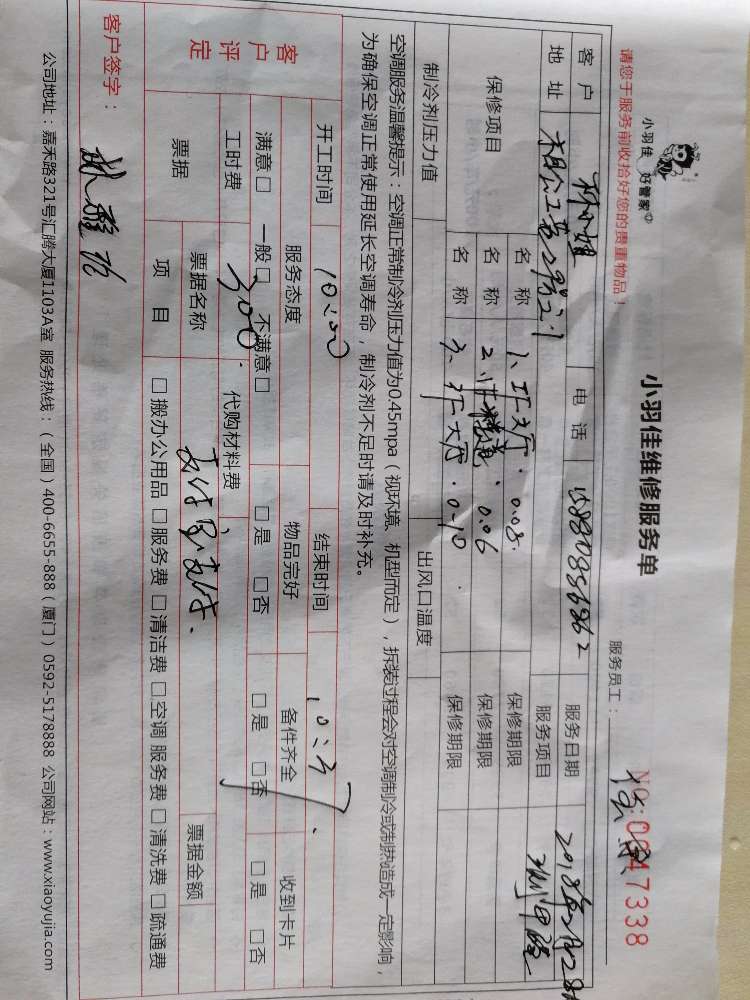 小羽佳 好管家
小羽佳维修服务单
请您于服务前收拾好您的贵重物品！
服务员工：
NO:0047338
客户 林小姐 电话 15880856862 服务日期
地址 服务项目
保修项目 名称 1、 0.08. 保修期限
名称 2、 0.06 保修期限
名称 3、 0.10 保修期限
制冷剂压力值 出风口温度
空调服务温馨提示：空调正常制冷剂压力值为0.45mpa（视环境、机型而定），拆装过程会对空调制冷或制热造成一定影响，
为确保空调正常使用延长空调寿命，制冷剂不足时请及时补充。
开工时间 10:00 结束时间
客户评定 服务态度 物品完好 备件齐全 收到卡片
满意□ 一般□ 不满意□ □是 □否 □是 □否 □是 □否
工时费 300. 代购材料费
票据 票据名称 票据金额
项目 □搬办公用品 □服务费 □清洁费 □空调 服务费 □清洗费 □疏通费
客户签字：
公司地址：嘉禾路321号汇腾大厦1103A室 服务热线：（全国）400-6655-888（厦门）0592-5178888 公司网站：www.xiaoyujia.com